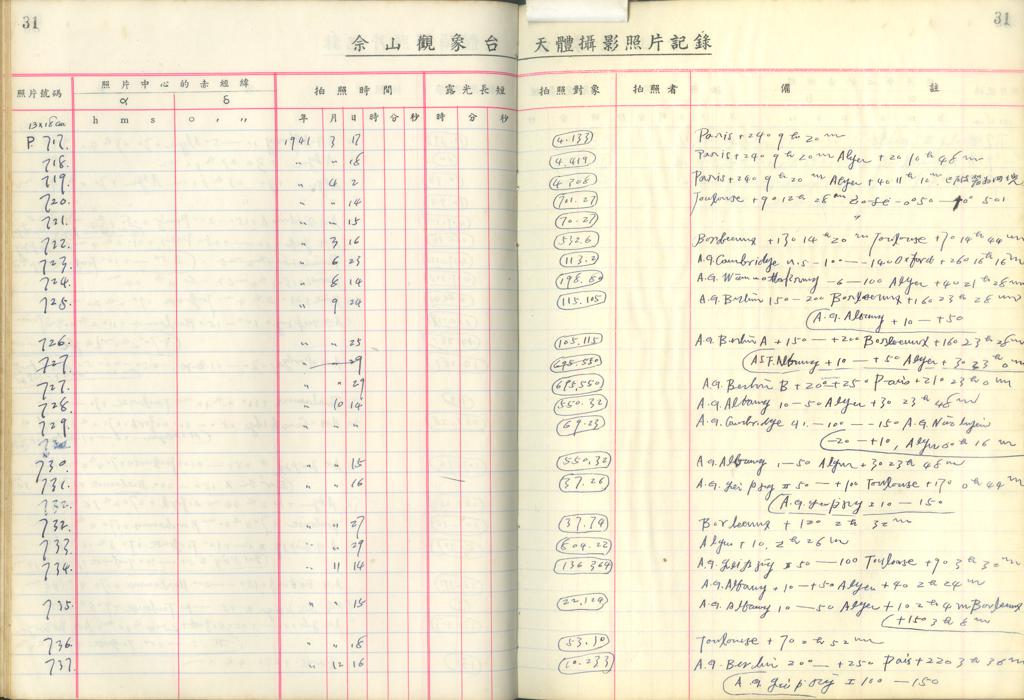 31
31
佘山觀象台 天體攝影照片記錄
照片號碼 照片中心的赤經緯 拍照時間 露光長短 拍照對象 拍照者 備註
α δ
h m s ° ′ ″ 年 月 日 時 分 秒 時 分 秒
13x18cm
P 717. 1941 3 17 4.133 Paris + 24° 9 h 20 m
718. " " 18 4.419 Paris + 24° 9 h 20 m Alger + 2° 10 h 48 m
719. " 4 2 4.308 Paris + 24° 9 h 20 m Alger + 4° 11 h 12 m
720. " " 14 701.27 Toulouse + 9° 12 h 28 m
721. " " 15 70.27
722. " 3 16 532.6 Bordeaux + 13° 14 h 20 m Toulouse + 7° 14 h 44 m
723. " 6 23 113.2 A.G. Cambridge
724. " 8 14 A.G. -6 — 10° Alger + 4° 21 h 28 m
725. " 9 24 115.105 A.G. Berlin 15° — 20° Bordeaux + 16° 23 h 28 m
A.G. Albany + 1° — + 5°
726. " " 25 105.115 A.G. Berlin A + 15° — + 20° Bordeaux + 16° 23 h 28 m
727. " " 29 695.550 Albany + 1° — + 5° Alger + 3° 23 h 0 m
727. " " 29 695.550 A.G. Berlin B + 20° + 25° Paris + 21° 23 h 0 m
728. " 10 14 550.32 A.G. Albany 1° — 5° Alger + 3° 23 h 48 m
729. " " " 69.23 A.G. Cambridge
-2° — + 1°, Alger 0 h 16 m
730. " " 15 550.32 A.G. Albany 1 — 5° Alger + 3° 23 h 48 m
731. " " 16 37.26 A.G. Leipzig II 5° — + 10° Toulouse + 7° 0 h 44 m
732. A.G. Leipzig I 10 — 15°
732. " " 27 37.74 Bordeaux + 12° 2 h 32 m
733. " " 29 804.22 Alger + 1°, 2 h 26 m
734. " 11 14 136.364 A.G. Leipzig II 5° — 10° Toulouse + 9° 3 h 30 m
A.G. Albany + 1° — + 5° Alger + 4° 2 h 24 m
735. " " 15 22.124 A.G. Albany 1° — 5° Alger + 1° 2 h 4 m Bordeaux
+ 15° 3 h 8 m
736. " " 18 53.10 Toulouse + 7° 2 h 52 m
737. " 12 16 10.233 A.G. Berlin 20° — + 25° Paris + 22° 3 h 36 m
A.G. Leipzig I 10° — 15°